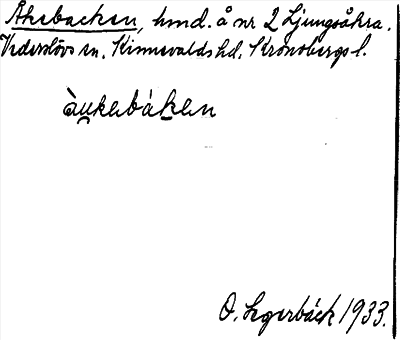 Åkebacken, hmd. å nr 2 Ljungsåkra.
Vederslövs sn. Kinnevalds hd. Kronobergs l.
àu̯kabák̲en
O. Lagerbäck 1933.